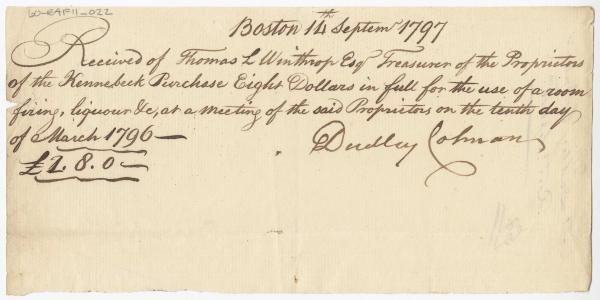 60-EAF11_022
Boston 14th Septemr 1797
Received of Thomas L Winthrop Esqr Treasurer of the Proprietors
of the Kennebeck Purchase Eight Dollars in full for the use of a room
firing, liquour &c, at a meeting of the said Proprietors on the tenth day
of March 1796—
Dudley Colman
£2.8.0—